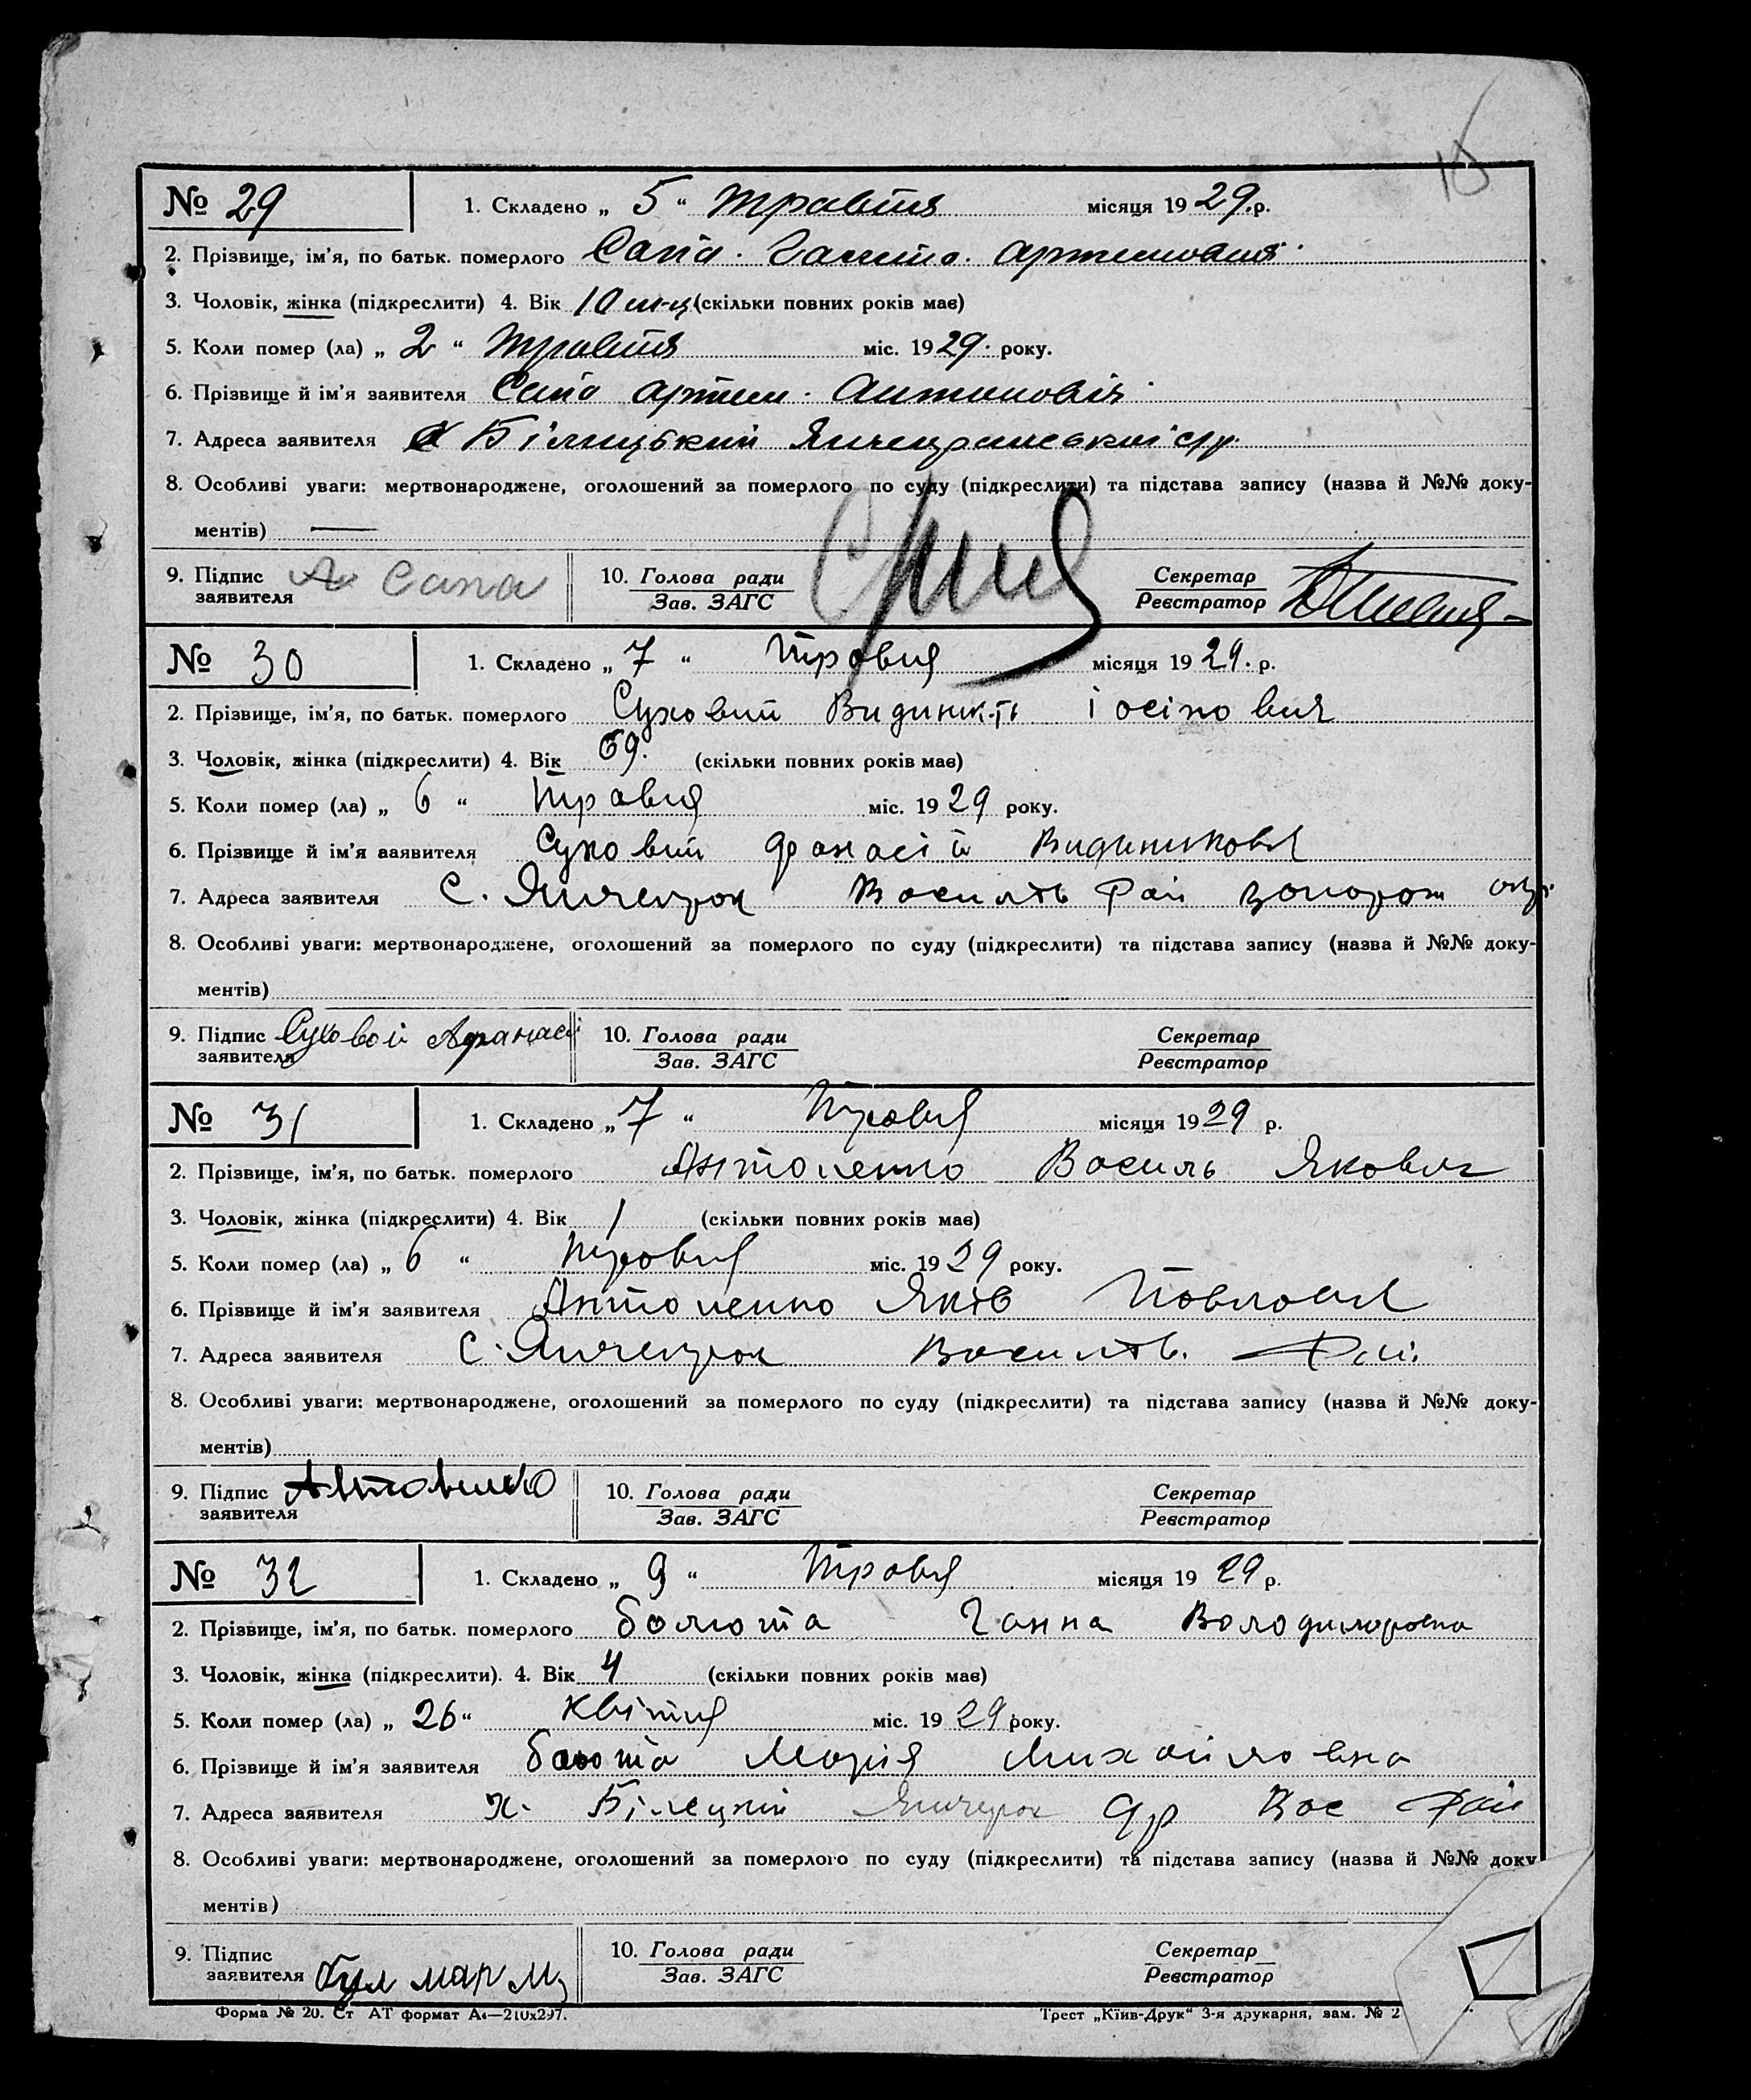 15
№ 29 1. Складено „ 5 “ травтня місяця 19 29. р.
2. Прізвище, ім'я, по батьк. померлого Сапа
3. Чоловік, жінка (підкреслити) 4. Вік 10 м-ц (скільки повних років має)
5. Коли помер (ла) „ 2 “ травтня міс. 19 29. року.
6. Прізвище й ім'я заявителя Сапа Артем Антоновіч
7. Адреса заявителя Біліцький
8. Особливі уваги: мертвонароджене, оголошений за померлого по суду (підкреслити) та підстава запису (назва й №№ доку-
ментів) —
9. Підпис заявителя Сапа 10. Голова ради Зав. ЗАГС Секретар Реєстратор
№ 30 1. Складено „ 7 “ Травня місяця 19 29. р.
2. Прізвище, ім'я, по батьк. померлого Суховий іосіпович
3. Чоловік, жінка (підкреслити) 4. Вік 69. (скільки повних років має)
5. Коли помер (ла) „ 6 “ Травня міс. 19 29 року.
6. Прізвище й ім'я заявителя Суховий фанасій
7. Адреса заявителя С. Янчекрак Василів Рай Запорож окр.
8. Особливі уваги: мертвонароджене, оголошений за померлого по суду (підкреслити) та підстава запису (назва й №№ доку-
ментів)
9. Підпис заявителя Суховой Афанасі 10. Голова ради Зав. ЗАГС Секретар Реєстратор
№ 31 1. Складено „ 7 “ Травня місяця 19 29 р.
2. Прізвище, ім'я, по батьк. померлого Антоненко Василь Якович
3. Чоловік, жінка (підкреслити) 4. Вік 1 (скільки повних років має)
5. Коли помер (ла) „ 6 “ Травня міс. 19 29 року.
6. Прізвище й ім'я заявителя Антоненко Яків Павлович
7. Адреса заявителя С. Янчекрак Василів. Рай.
8. Особливі уваги: мертвонароджене, оголошений за померлого по суду (підкреслити) та підстава запису (назва й №№ доку-
ментів)
9. Підпис заявителя Антоненко 10. Голова ради Зав. ЗАГС Секретар Реєстратор
№ 32 1. Складено „ 9 “ Травня місяця 19 29 р.
2. Прізвище, ім'я, по батьк. померлого Болюта Ганна Володимировна
3. Чоловік, жінка (підкреслити). 4. Вік 4 (скільки повних років має)
5. Коли помер (ла) „ 26 “ Квітня міс. 19 29 року.
6. Прізвище й ім'я заявителя Марія Михайловна
7. Адреса заявителя х. Білецкий Янчекрак Вас Рай
8. Особливі уваги: мертвонароджене, оголошений за померлого по суду (підкреслити) та підстава запису (назва й №№ доку
ментів)
9. Підпис заявителя мар 10. Голова ради Зав. ЗАГС Секретар Реєстратор
Форма № 20. Ст АТ формат А4—210х297. Трест „Київ-Друк“ 3-я друкарня, зам. № 2